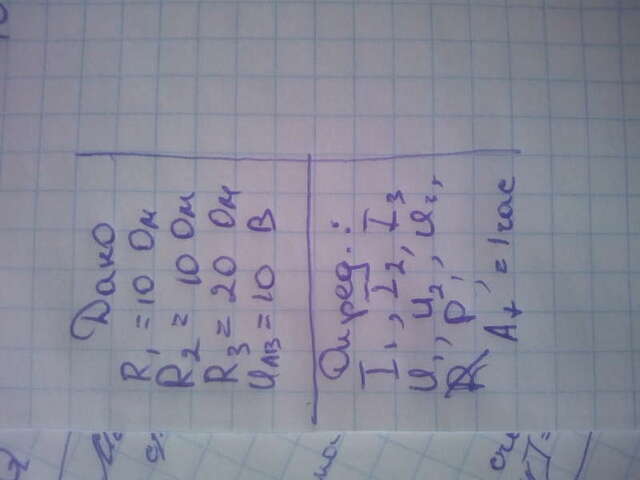 Дано
R₁ = 10 Ом
R₂ = 10 Ом
R₃ = 20 Ом
UАВ = 10 В
Опред.:
I₁, I₂, I₃
U₁, U₂, U₃,
P,
At = 1 час